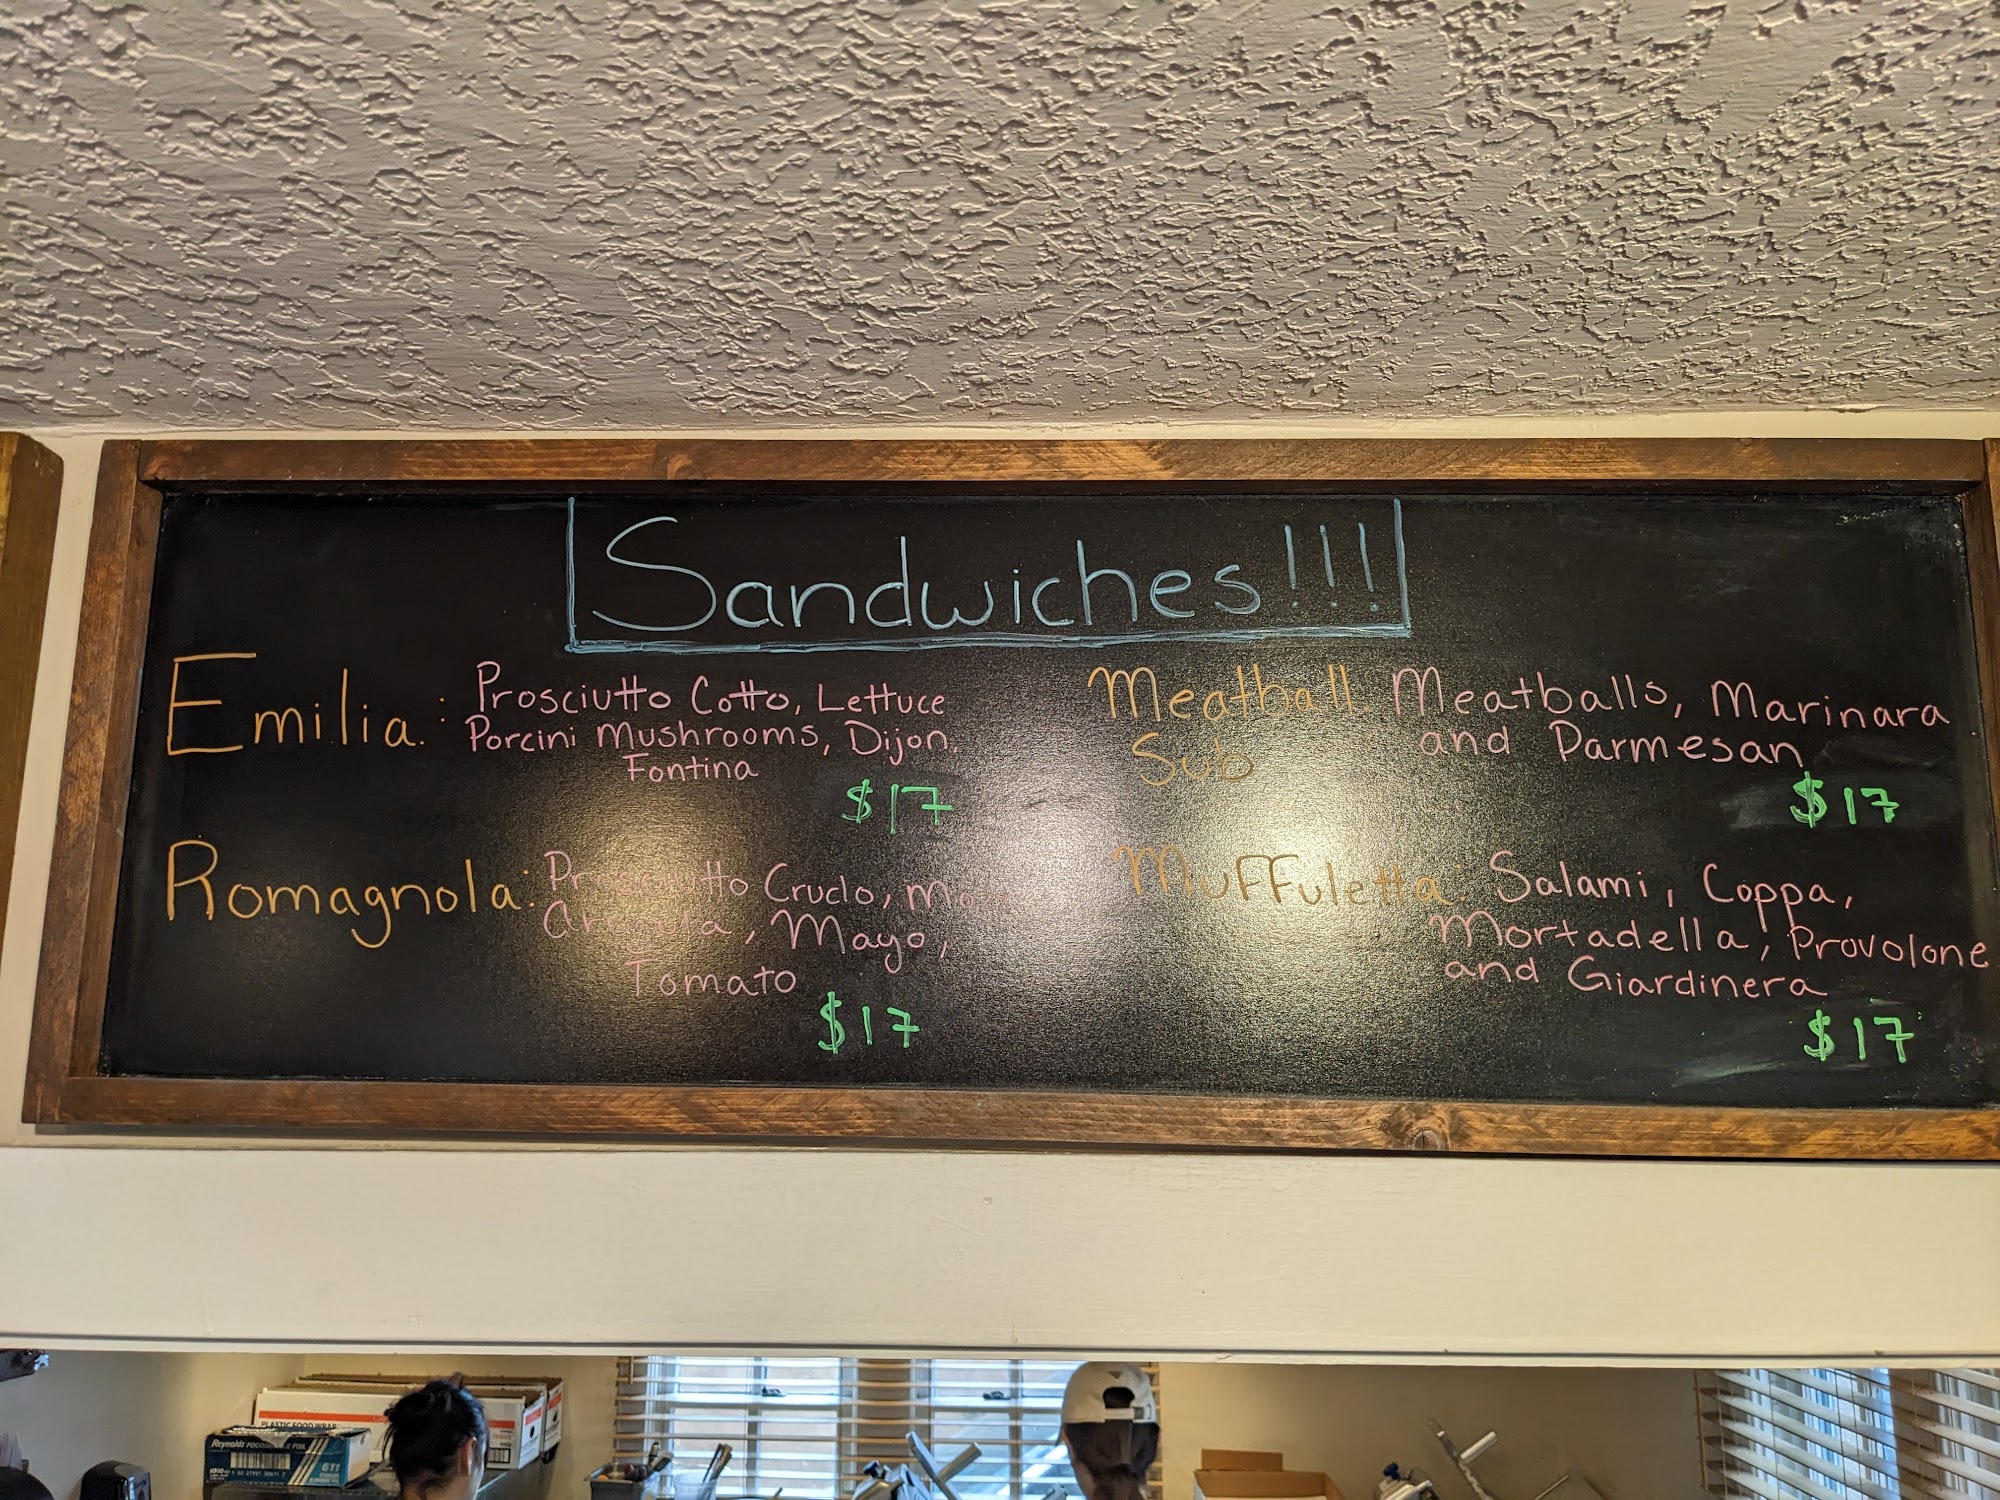 Sandwiches!!!
Emilia: Prosciutto Cotto, Lettuce
Porcini Mushrooms, Dijon,
Fontina
$17
Romagnola: Prosciutto Crudo, Mozz
Arugula, Mayo,
Tomato
$17
Meatball Meatballs, Marinara
Sub and Parmesan
$17
Muffuletta: Salami, Coppa,
Mortadella, Provolone
and Giardinera
$17
PLASTIC FOOD WRAP
Reynolds
611